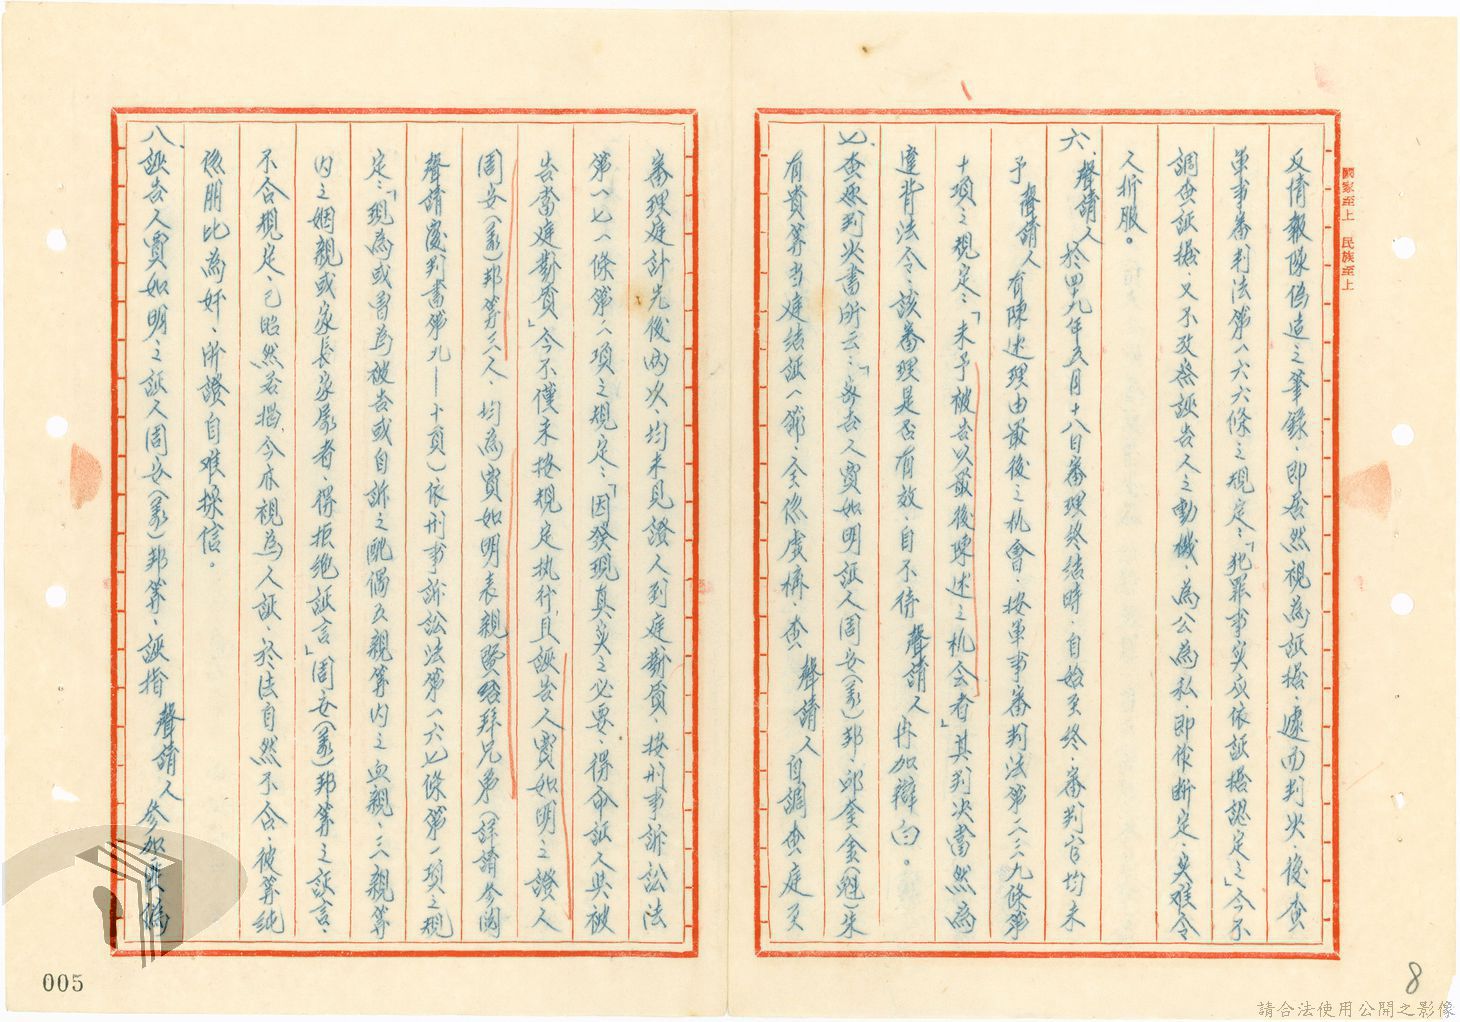 國家至上 民族至上
反情報隊偽造之筆錄，即居然視為証据，遽而判決。後查
軍事審判法第一六六條之規定：「犯罪事实应依証据認定之」今不
調查証据，又不攷察誣告人之動機，為公為私，即作断定，实难令
人折服。
六、聲請人於四九年五月十八日審理終結時，自始至終，審判官均未
予聲請人有陳述理由最後之机會，按軍事審判法第一三九條第
十項之規定：「未予被告以最後陳述之机会者」其判決當然為
違背法令，該審理是否有效，自不待聲請人再加辯白。
七、查原判決書所云：「家告人實如明証人周安(义)邦、邱奎金(魁)朱
有貴等当庭結証一節，全係虛構，查聲請人自調查庭至
審理庭計先後兩次，均未見證人到庭對质，按刑事訴訟法
第一七一條第六項之規定：「因發現真实之必要，得命証人與被
告當庭對質」今不僅未按規定执行，且誣告人實如明之證人
周安(义)邦等三人，均為實如明表親暨 拜兄弟(詳請參閱
聲請覆判書第九——十頁)依刑事訴訟法第一六七條第一項之規
定：「現為或曾為被告或自訴之配偶五親等內之血親，三親等
內之姻親或家長家屬者，得拒絕証言」周安(义)邦等之証言，
不合規定，已昭然若揭，今亦視為人証，於法自然不合，彼等純
係朋比為奸，所證自难採信。
八、誣告人實如明之証人周安(义)邦等，誣指聲請人參加匪偽
005
8
請合法使用公開之影像